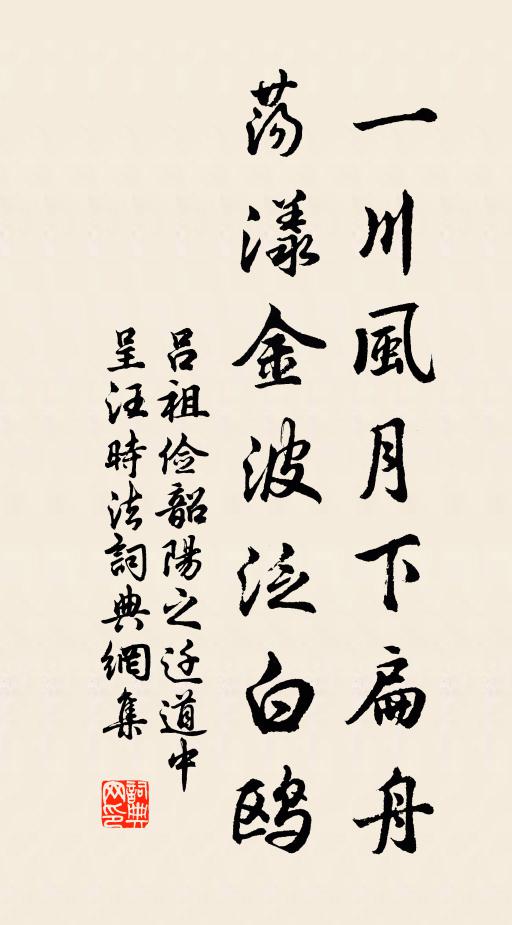 一川風月下扁舟
蕩漾金波泛白鸥
吕祖俭韶陽之迁道中
呈汪時法詞典網集
詞典网印